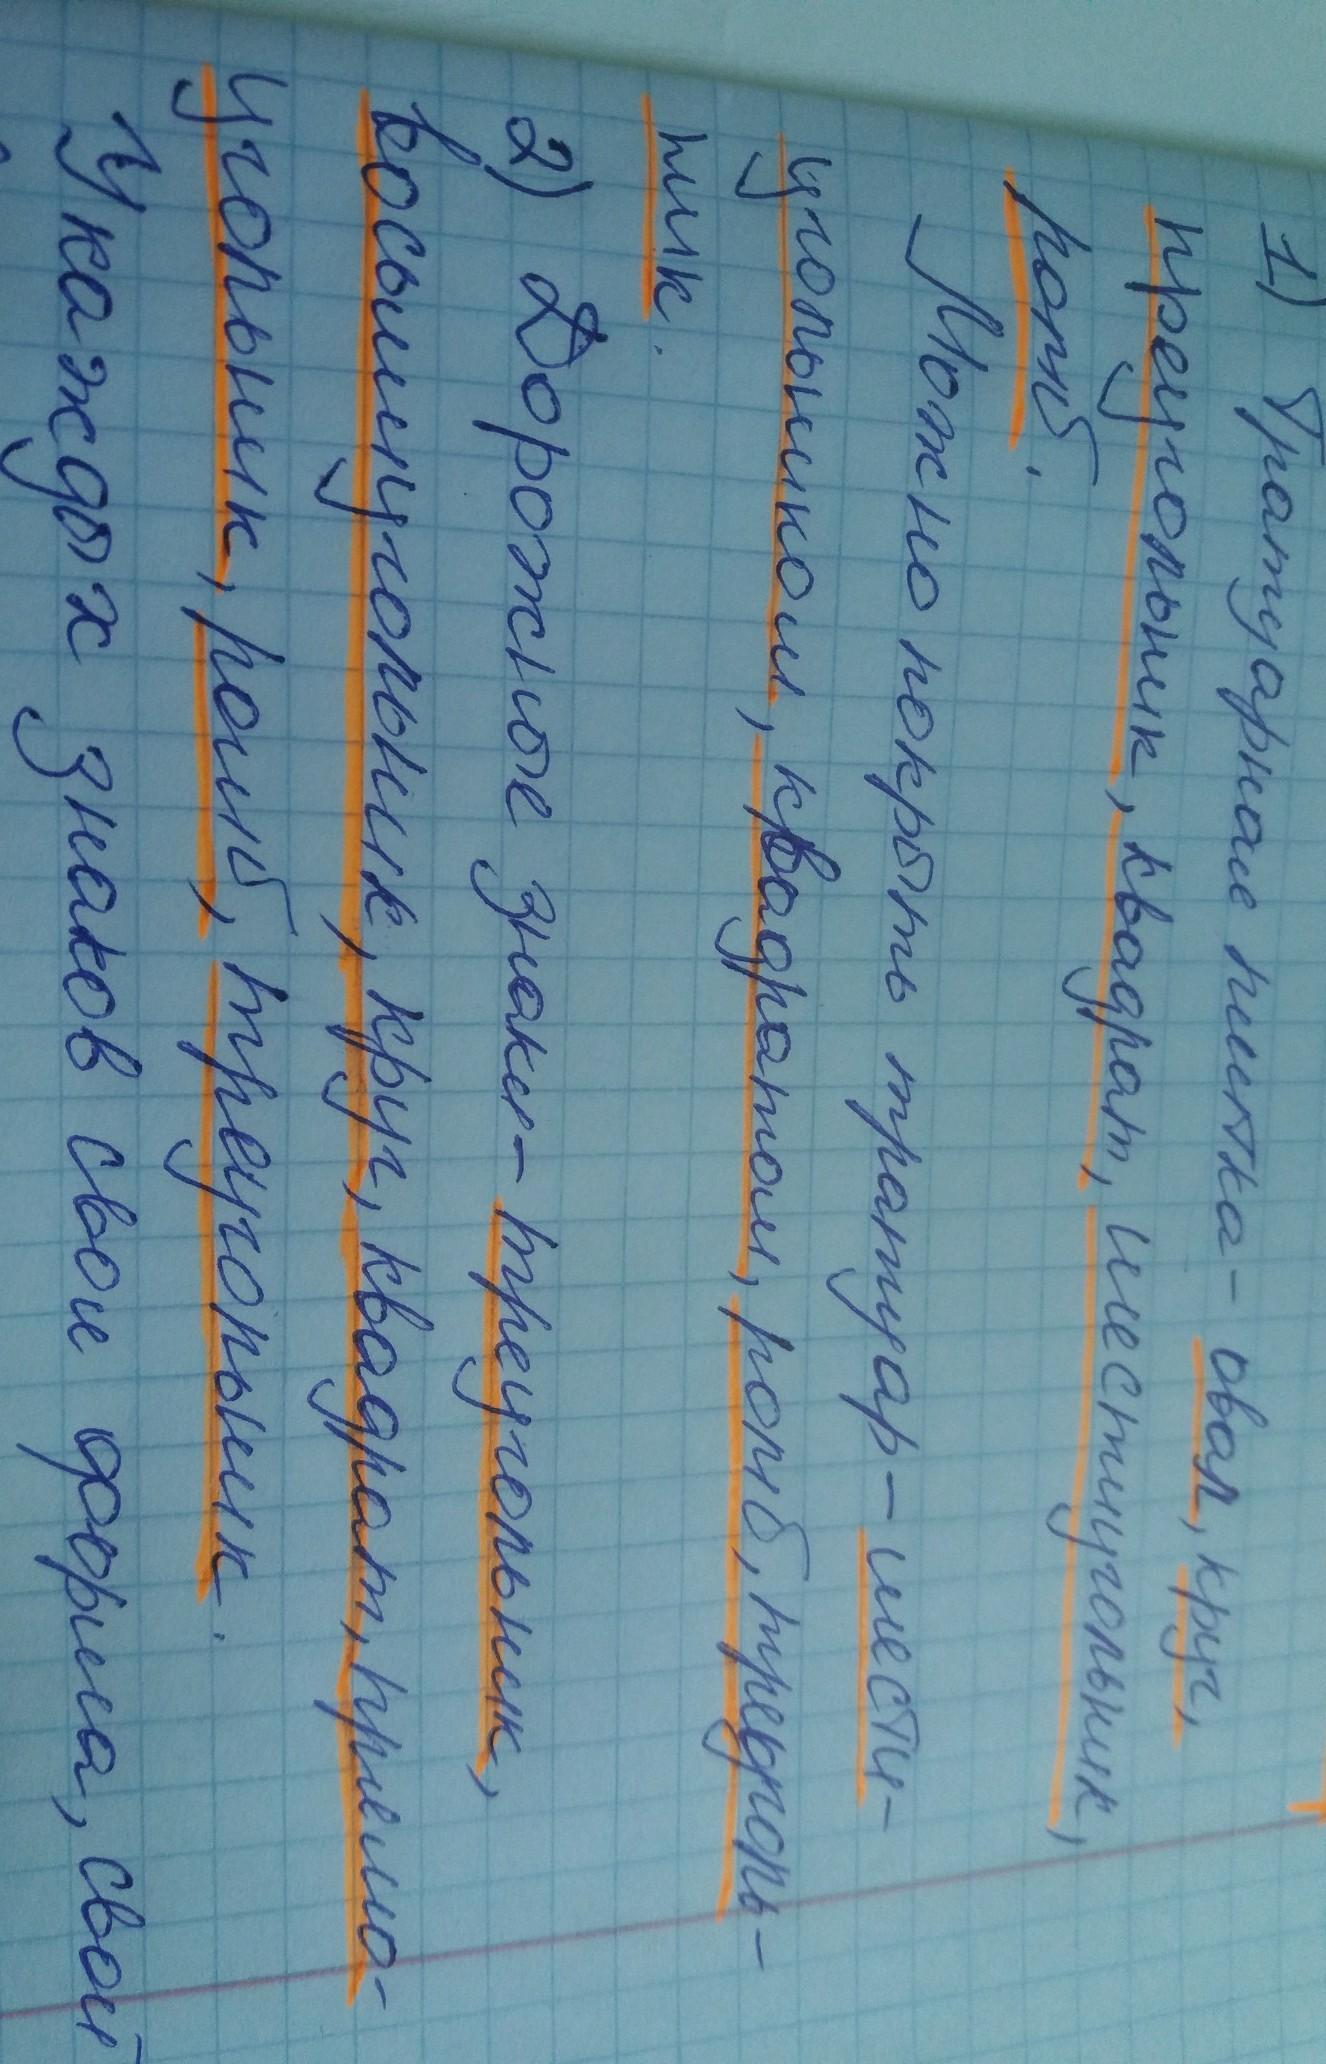 1) Тротуарная плитка - овал, круг,
треугольник, квадрат, шестиугольник,
ромб.
Можно покрыть тротуар - шести-
угольником, квадратом, ромб, треуголь-
ник.
2) Дорожные знаки - треугольник,
восьмиугольник, круг, квадрат, прямо-
угольник, ромб, треугольник.
У каждых знаков свои форма, свой